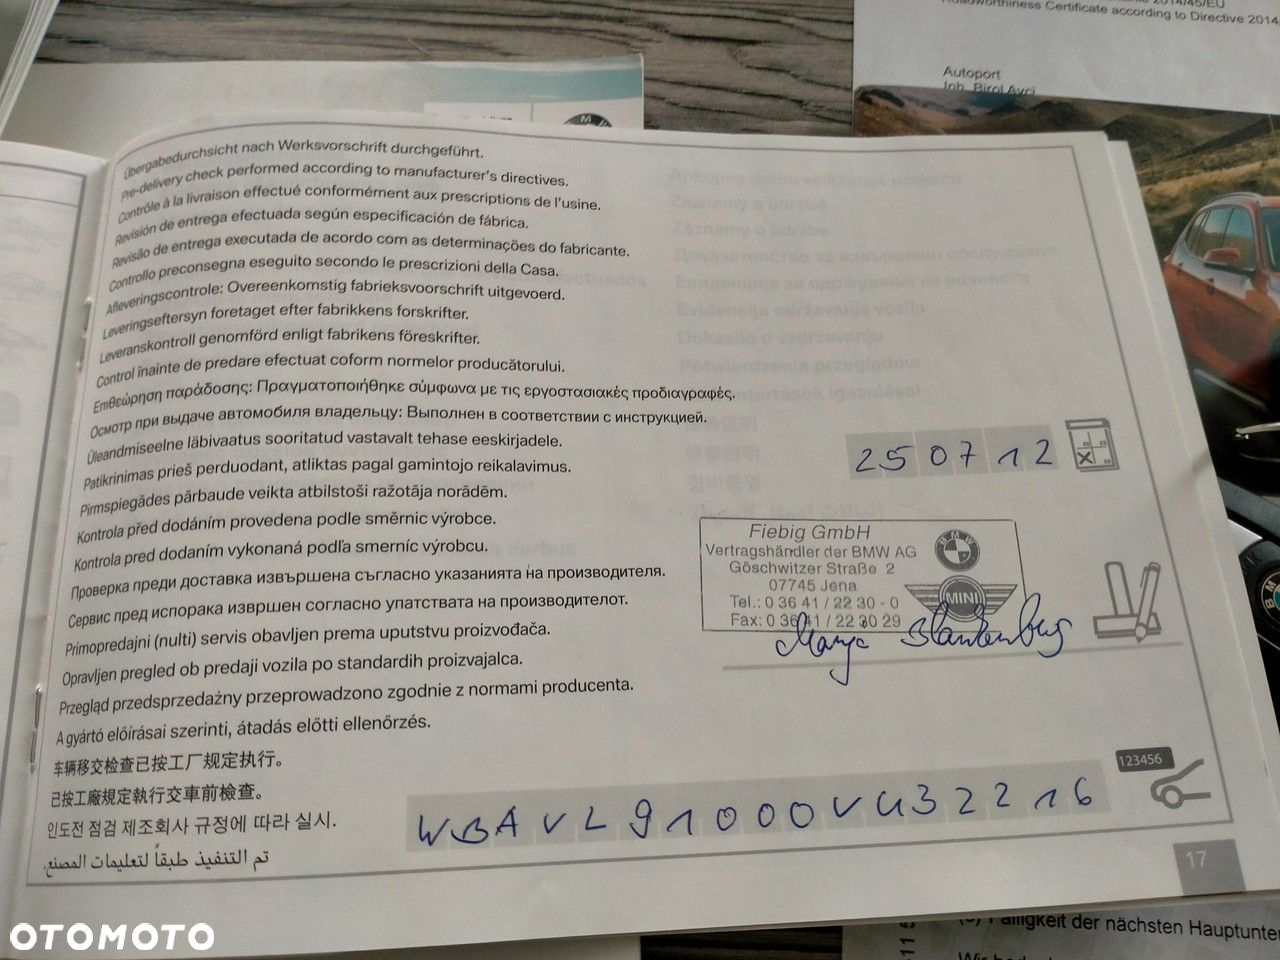 Roadworthiness Certificate according to Directive 2014
Autoport
Inh. Birol Avci
Übergabedurchsicht nach Werksvorschrift durchgeführt.
Pre-delivery check performed according to manufacturer's directives.
Contrôle à la livraison effectué conformément aux prescriptions de l'usine.
Revisión de entrega efectuada según especificación de fábrica.
Revisão de entrega executada de acordo com as determinações do fabricante.
Controllo preconsegna eseguito secondo le prescrizioni della Casa.
Afleveringscontrole: Overeenkomstig fabrieksvoorschrift uitgevoerd.
Leveringseftersyn foretaget efter fabrikkens forskrifter.
Leveranskontroll genomförd enligt fabrikens föreskrifter.
Control înainte de predare efectuat coform normelor producătorului.
Επιθεώρηση παράδοσης: Πραγματοποιήθηκε σύμφωνα με τις εργοστασιακές προδιαγραφές.
Осмотр при выдаче автомобиля владельцу: Выполнен в соответствии с инструкцией.
Üleandmiseelne läbivaatus sooritatud vastavalt tehase eeskirjadele.
Patikrinimas prieš perduodant, atliktas pagal gamintojo reikalavimus.
Pirmspiegādes pārbaude veikta atbilstoši ražotāja norādēm.
Kontrola před dodáním provedena podle směrnic výrobce.
Kontrola pred dodaním vykonaná podľa smerníc výrobcu.
Проверка преди доставка извършена съгласно указанията на производителя.
Сервис пред испорака извршен согласно упатствата на производителот.
Primopredajni (nulti) servis obavljen prema uputstvu proizvođača.
Opravljen pregled ob predaji vozila po standardih proizvajalca.
Przegląd przedsprzedażny przeprowadzono zgodnie z normami producenta.
A gyártó előírásai szerinti, átadás előtti ellenőrzés.
车辆移交检查已按工厂规定执行。
已按工廠規定執行交車前檢查。
인도전 점검 제조회사 규정에 따라 실시.
تم التنفيذ طبقاً لتعليمات المصنع.
25 07 12
Fiebig GmbH
Vertragshändler der BMW AG
Göschwitzer Straße 2
07745 Jena
Tel.: 0 36 41 / 22 30 - 0
Fax: 0 36 41 / 22 30 29
BMW
MINI
123456
WBAVL91000VU32216
17
Fälligkeit der nächsten Hauptunter
OTOMOTO